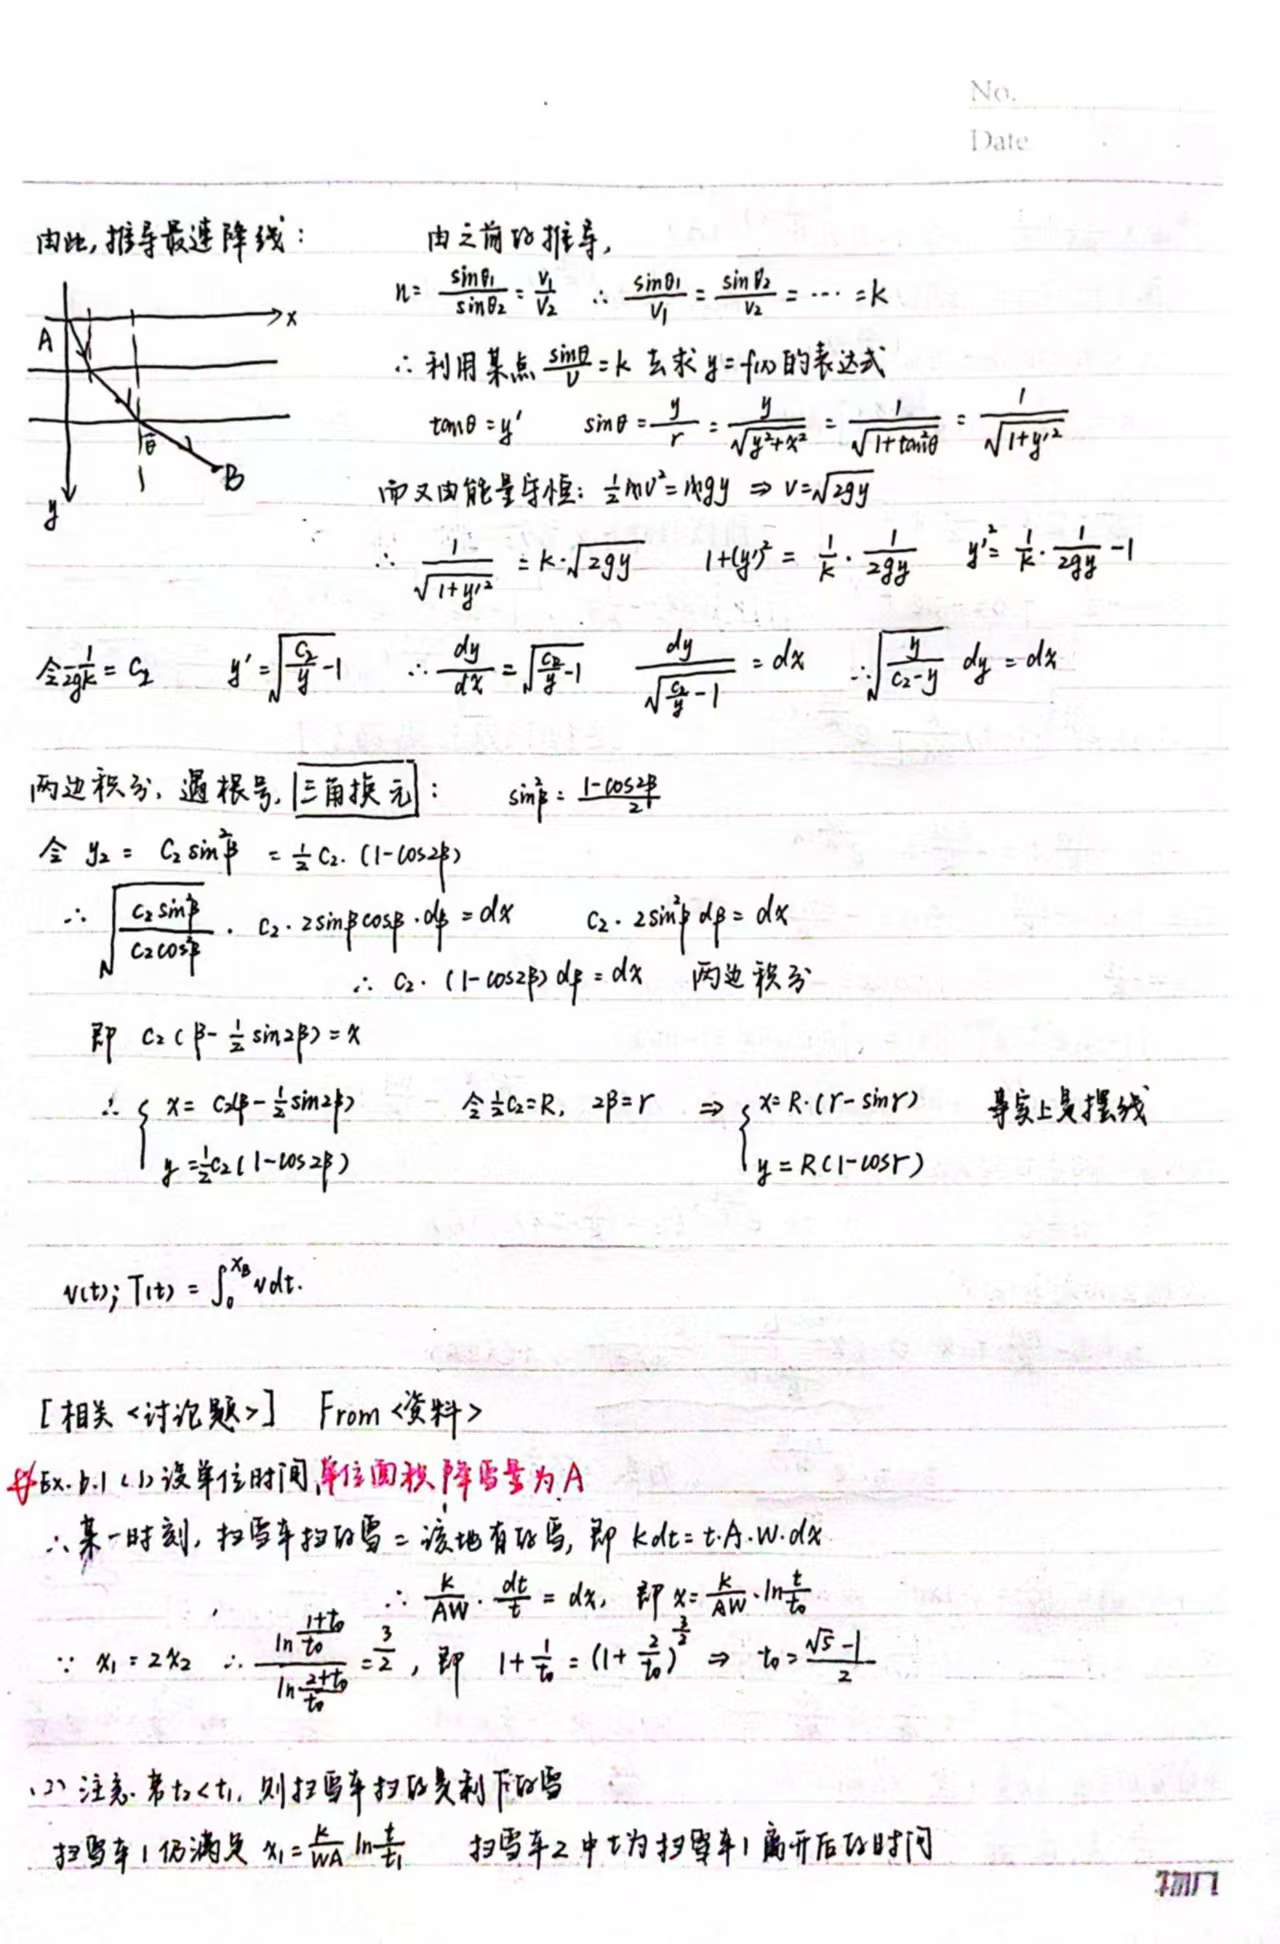 No.
Date
由此,推导最速降线:
由之前的推导,
n = \frac{sinθ₁}{sinθ₂} = \frac{v₁}{v₂} ∴ \frac{sinθ₁}{v₁} = \frac{sinθ₂}{v₂} = ⋯ = k
A
x
∴ 利用某点 \frac{sinθ}{v} = k 去求 y=f(x)的表达式
tanθ = y' sinθ = \frac{y}{r} = \frac{y}{\sqrt{y²+x²}} = \frac{1}{\sqrt{1+tan²θ}} = \frac{1}{\sqrt{1+y'²}}
θ
B
y
而又由能量守恒: ½mv² = mgy ⇒ v=\sqrt{2gy}
∴ \frac{1}{\sqrt{1+y'²}} = k·\sqrt{2gy} 1+(y')² = \frac{1}{k}·\frac{1}{2gy} y'² = \frac{1}{k}·\frac{1}{2gy} -1
令\frac{1}{2gk} = C₂ y' = \sqrt{\frac{C₂}{y}-1} ∴ \frac{dy}{dx} = \sqrt{\frac{C₂}{y}-1} \frac{dy}{\sqrt{\frac{C₂}{y}-1}} = dx ∴ \sqrt{\frac{y}{C₂-y}} dy = dx
两边积分, 遇根号, 三角换元: sin²β = \frac{1-cos2β}{2}
令 y₂ = C₂sin²β = ½C₂·(1-cos2β)
∴ \sqrt{\frac{C₂sin²β}{C₂cos²β}} · C₂·2sinβcosβ·dβ = dx C₂·2sin²β dβ = dx
∴ C₂·(1-cos2β)dβ = dx 两边积分
即 C₂(β-½sin2β) = x
∴ { x = C₂(β-½sin2β) 令½C₂=R, 2β=r ⇒ { x=R·(r-sinr) 事实上是摆线
y = ½C₂(1-cos2β) y = R(1-cosr)
v(t); T(t) = ∫₀^{x_B} vdt.
[相关<讨论题>] From<资料>
Ex.6.1 (1) 设单位时间单位面积降雪量为A
∴某一时刻, 扫雪车扫的雪 = 该地有的雪, 即 kdt = t·A·W·dx
∴ \frac{k}{AW}·\frac{dt}{t} = dx, 即 x = \frac{k}{AW}·ln\frac{t}{t₀}
∵ x₁ = 2x₂ ∴ \frac{ln\frac{1+t₀}{t₀}}{ln\frac{2+t₀}{t₀}} = \frac{3}{2}, 即 1+\frac{1}{t₀} = (1+\frac{2}{t₀})^{\frac{3}{2}} ⇒ t₀ = \frac{\sqrt{5}-1}{2}
(2) 注意. 若t₂<t₁, 则扫雪车扫的是剩下的雪
扫雪车1仍满足 x₁ = \frac{k}{WA} ln\frac{t}{t₁} 扫雪车2中t为扫雪车1离开后的时间